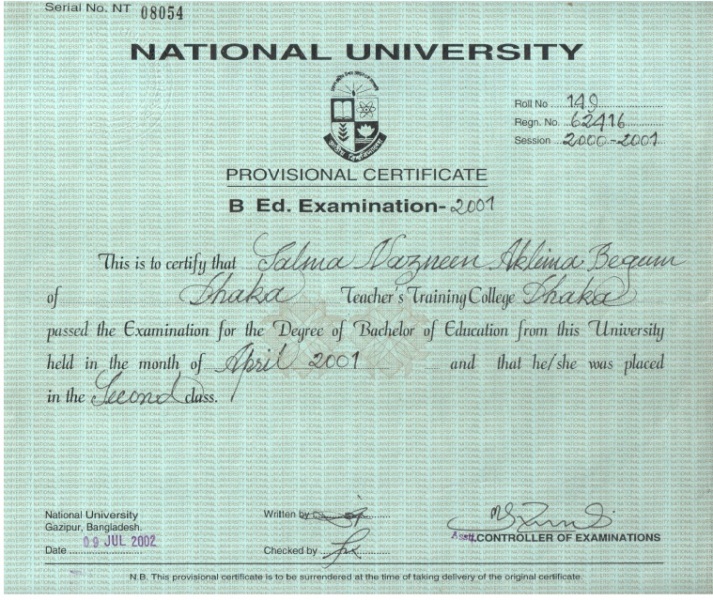 Serial No. NT 08054
NATIONAL UNIVERSITY
Roll No 149
Regn. No. 62416
Session 2000-2001
PROVISIONAL CERTIFICATE
B Ed. Examination-2001
This is to certify that Salma Nazneen Aklima Begum
of Dhaka Teacher's Training College Dhaka
passed the Examination for the Degree of Bachelor of Education from this University
held in the month of April 2001 and that he/she was placed
in the Second class.
National University
Gazipur, Bangladesh.
Date 09 JUL 2002
Written by
Checked by
Asstt. CONTROLLER OF EXAMINATIONS
N.B. This provisional certificate is to be surrendered at the time of taking delivery of the original certificate.